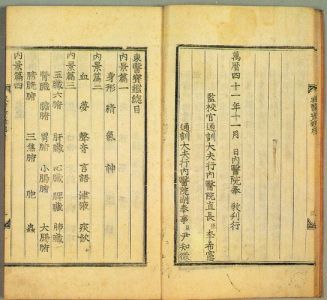 萬曆四十一年十一月 日內醫院奉 敎刊行
監校官通訓大夫行內醫院直長臣李希憲
通訓大夫行內醫院副奉事臣尹知微
東醫寶鑑總目
內景篇一
身形 精 氣 神
內景篇二
血 夢 聲音 言語 津液 痰飮
內景篇三
五臟六腑 肝臟 心臟 脾臟 肺臟
腎臟 膽腑 胃腑 小腸腑 大腸腑
膀胱腑 三焦腑 胞 蟲
內景篇四